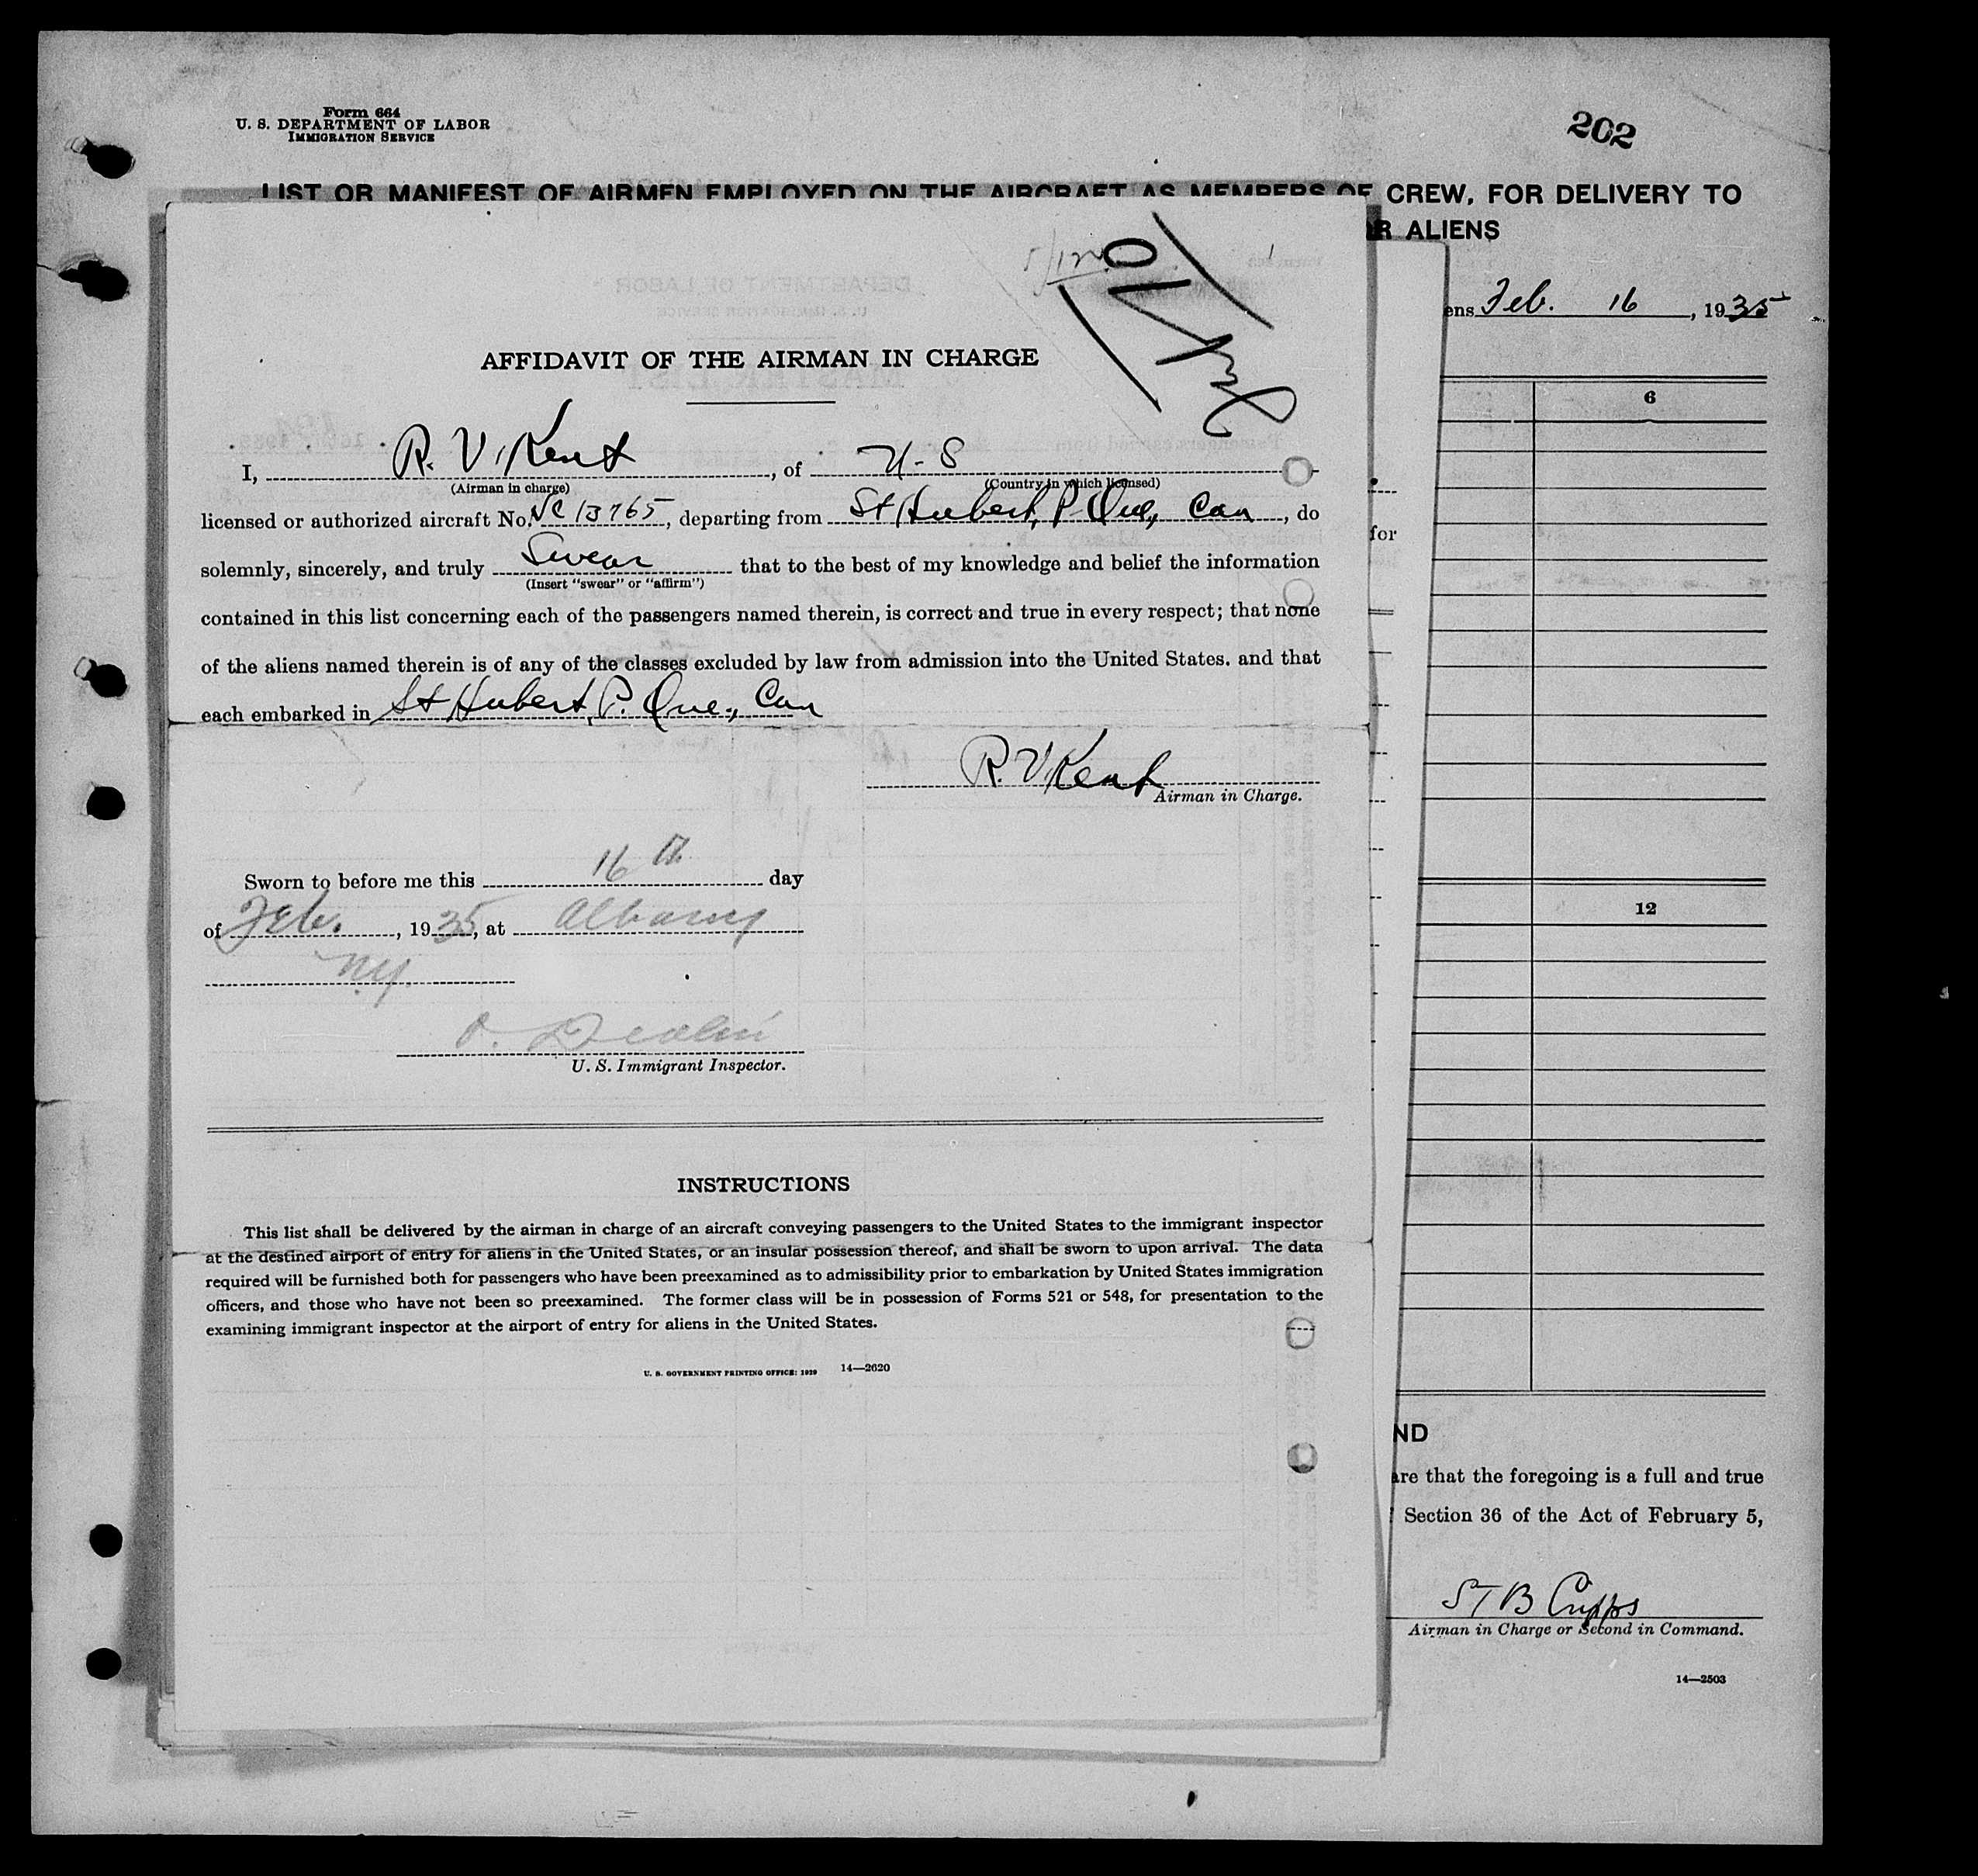 Form 664
U. S. DEPARTMENT OF LABOR
IMMIGRATION SERVICE
202
LIST OR MANIFEST OF AIRMEN EMPLOYED ON THE AIRCRAFT AS MEMBERS OF CREW, FOR DELIVERY TO
R ALIENS
ens Feb. 16, 1935
6
for
12
AFFIDAVIT OF THE AIRMAN IN CHARGE
I, R. V. Kent, of U-S
(Airman in charge) (Country in which licensed)
licensed or authorized aircraft No. NC 13765, departing from St Hubert, P. Que, Can, do
solemnly, sincerely, and truly Swear that to the best of my knowledge and belief the information
(Insert "swear" or "affirm")
contained in this list concerning each of the passengers named therein, is correct and true in every respect; that none
of the aliens named therein is of any of the classes excluded by law from admission into the United States. and that
each embarked in St Hubert, P. Que., Can
R. V. Kent
Airman in Charge.
Sworn to before me this 16th day
of Feb., 1935, at Albany
N.Y.
U. S. Immigrant Inspector.
INSTRUCTIONS
This list shall be delivered by the airman in charge of an aircraft conveying passengers to the United States to the immigrant inspector
at the destined airport of entry for aliens in the United States, or an insular possession thereof, and shall be sworn to upon arrival. The data
required will be furnished both for passengers who have been preexamined as to admissibility prior to embarkation by United States immigration
officers, and those who have not been so preexamined. The former class will be in possession of Forms 521 or 548, for presentation to the
examining immigrant inspector at the airport of entry for aliens in the United States.
U. S. GOVERNMENT PRINTING OFFICE: 1929 14—2620
ND
are that the foregoing is a full and true
Section 36 of the Act of February 5,
S T B Cripps
Airman in Charge or Second in Command.
14—2503